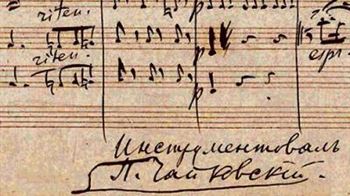 riten.
riten.
p
espr.
p
Инструментовалъ
П. Чайковскій.